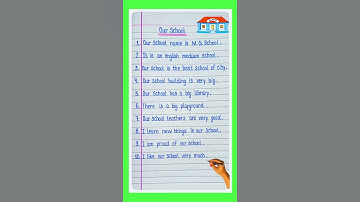 Our School
1. Our School name is M.D. School.
2. It is an English medium School.
3. Our School is the best School of City.
4. Our School building is very big.
5. Our School has a big library.
6. There is a big playground.
7. Our School teachers are very good.
8. I learn new things in our School.
9. I am proud of our School.
10. I like our School very much.